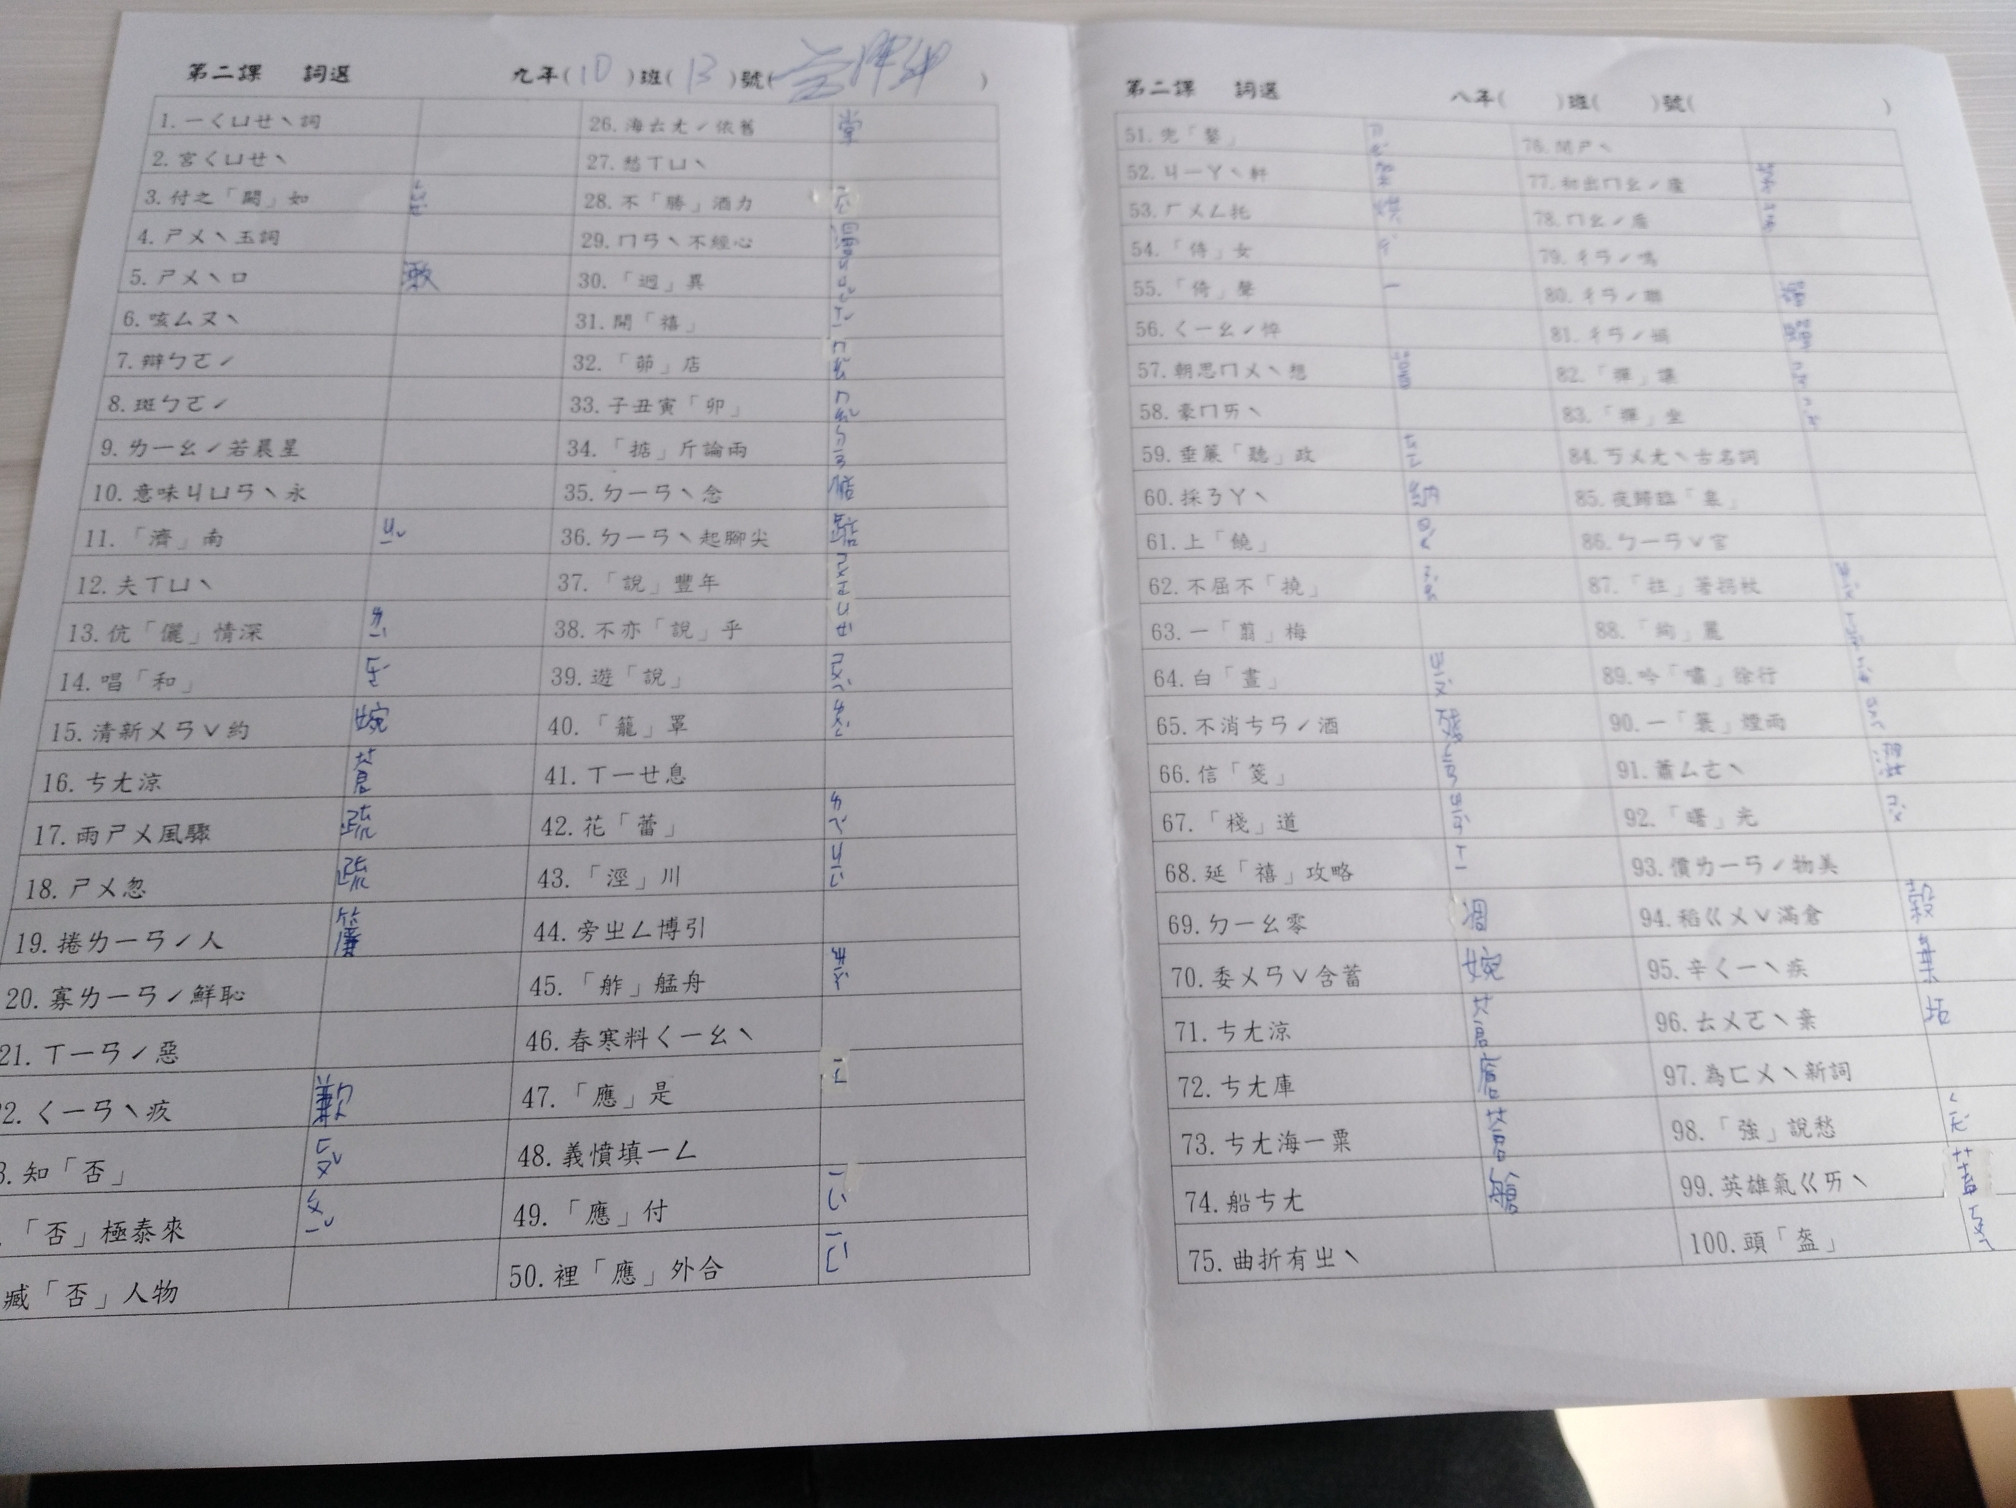 第二課 詞選 九年(10)班(13)號( )
1.ㄧㄑㄩㄝˋ詞
2.宮ㄑㄩㄝˋ
3.付之「闕」如
4.ㄕㄨˋ玉詞
5.ㄕㄨˋ口 漱
6.咳ㄙㄡˋ
7.辯ㄅㄛˊ
8.斑ㄅㄛˊ
9.ㄌㄧㄠˊ若晨星
10.意味ㄐㄩㄢˋ永
11.「濟」南 ㄐㄧˇ
12.夫ㄒㄩˋ
13.伉「儷」情深 ㄌㄧˋ
14.唱「和」 ㄏㄜˋ
15.清新ㄨㄢˇ約 婉
16.ㄘㄤ涼 蒼
17.雨ㄕㄨ風驟 疏
18.ㄕㄨ忽 疏
19.捲ㄌㄧㄢˊ人 簾
20.寡ㄌㄧㄢˊ鮮恥
21.ㄒㄧㄢˊ惡
2.ㄑㄧㄢˋ疚 歉
3.知「否」 ㄈㄡˇ
「否」極泰來 ㄆㄧˇ
臧「否」人物
26.海ㄊㄤˊ依舊 棠
27.愁ㄒㄩˋ
28.不「勝」酒力
29.ㄇㄢˋ不經心 漫
30.「迥」異 ㄐㄩㄥˇ
31.開「禧」 ㄒㄧˇ
32.「茆」店 ㄇㄠˊ
33.子丑寅「卯」 ㄇㄠˇ
34.「掂」斤論兩 ㄉㄧㄢ
35.ㄉㄧㄢˋ念 惦
36.ㄉㄧㄢˋ起腳尖 踮
37.「說」豐年 ㄕㄨㄛ
38.不亦「說」乎 ㄩㄝˋ
39.遊「說」 ㄕㄨㄟˋ
40.「籠」罩 ㄌㄨㄥˇ
41.ㄒㄧㄝ息
42.花「蕾」 ㄌㄟˇ
43.「涇」川 ㄐㄧㄥ
44.旁ㄓㄥ博引
45.「舴」艋舟 ㄗㄜˊ
46.春寒料ㄑㄧㄠˋ
47.「應」是 ㄧㄥ
48.義憤填ㄧㄥ
49.「應」付 ㄧㄥˋ
50.裡「應」外合 ㄧㄥˋ
第二課 詞選 八年( )班( )號( )
51.兜「鍪」 ㄇㄡˊ
52.ㄐㄧㄚˋ軒
53.ㄏㄨㄥ托 烘
54.「侍」女 ㄕˋ
55.「倚」聲
56.ㄑㄧㄠˊ悴
57.朝思ㄇㄨˋ想
58.豪ㄇㄞˋ
59.垂簾「聽」政 ㄊㄧㄥ
60.採ㄋㄚˋ 納
61.上「饒」 ㄖㄠˊ
62.不屈不「撓」 ㄋㄠˊ
63.一「翦」梅
64.白「晝」 ㄓㄡˋ
65.不消ㄘㄢˊ酒 殘
66.信「箋」
67.「棧」道 ㄓㄢˋ
68.延「禧」攻略 ㄒㄧ
69.ㄉㄧㄠ零 凋
70.委ㄨㄢˇ含蓄 婉
71.ㄘㄤ涼 蒼
72.ㄘㄤ庫
73.ㄘㄤ海一粟
74.船ㄘㄤ 艙
75.曲折有ㄓˋ
76.閉ㄕˋ
77.初出ㄇㄠˊ廬 茅
78.ㄇㄠˊ盾 矛
79.ㄔㄢˊ鳴
80.ㄔㄢˊ聯
82.「禪」讓
83.「禪」坐
84.ㄎㄨㄤˋ古名詞
86.ㄅㄧㄢˇ官
87.「拄」著拐杖
88.「絢」麗
89.吟「嘯」徐行
90.一「蓑」煙雨
91.蕭ㄙㄜˋ
92.「曙」光
93.價ㄌㄧㄢˊ物美
94.稻ㄍㄨˇ滿倉
95.辛ㄑㄧˋ疾 棄
96.ㄊㄨㄛˋ棄
97.為ㄈㄨˋ新詞
98.「強」說愁 ㄑㄧㄤˇ
99.英雄氣ㄍㄞˋ
100.頭「盔」 ㄎㄨㄟ